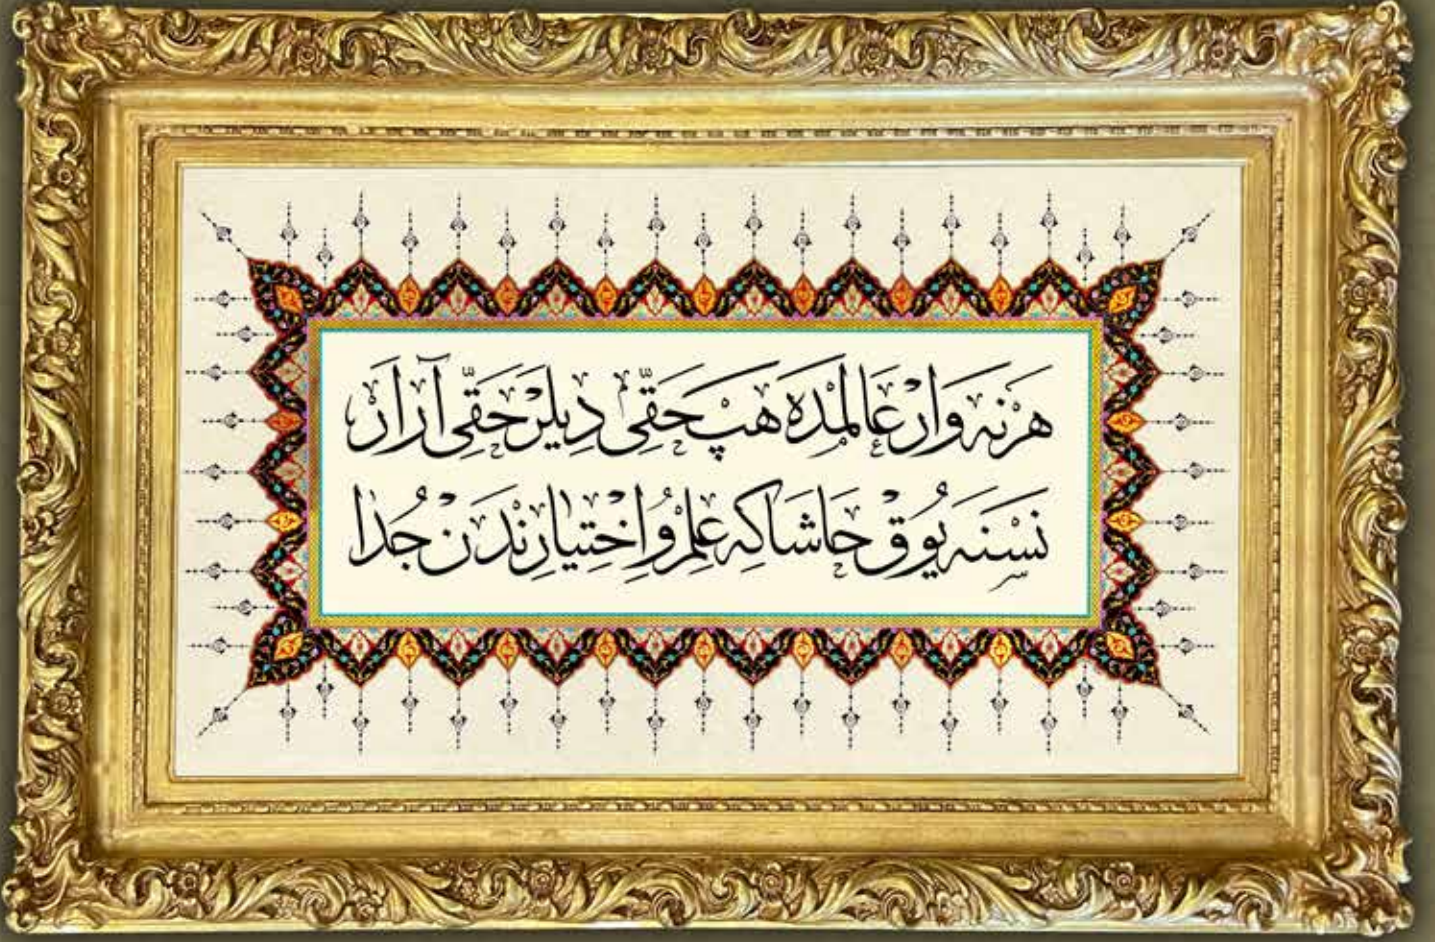 هَرْنَه وَارْ عَالَمْدَه هَپْ حَقِّى دِيلَرْ حَقِّى آرَارْ
نَسْنَه يُوقْ حَاشَا كِه عِلْمُ و اِخْتِيَارِنْدَنْ جُدَا